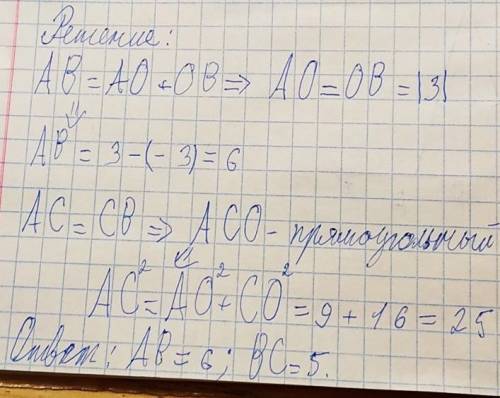 Решение:
AB = AO + OB ⇒ AO = OB = |3|
⇓
AB = 3 - (- 3) = 6
AC = CB ⇒ ACO - прямоугольный
⇓
AC² = AO² + CO² = 9 + 16 = 25
Ответ: AB = 6; BC = 5.